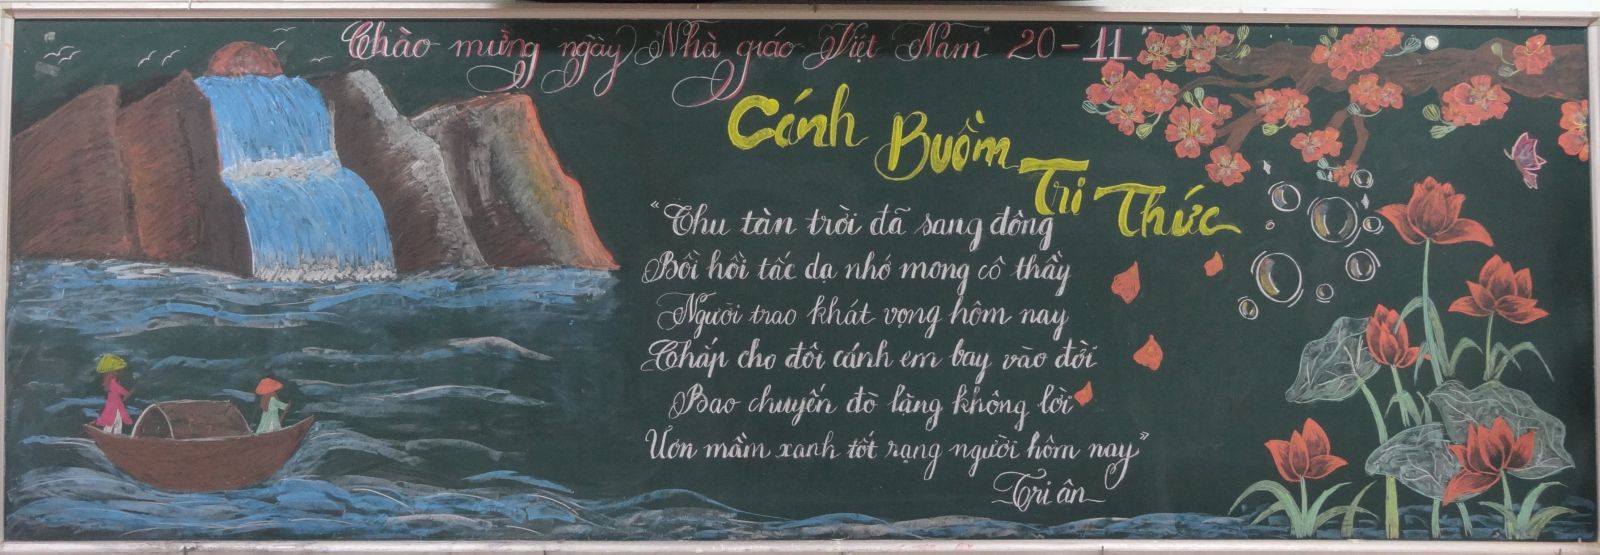 Chào mừng ngày Nhà giáo Việt Nam 20-11
Cánh Buồm Tri Thức
"Thu tàn trời đã sang đông
Bồi hồi tấc dạ nhớ mong cô thầy
Người trao khát vọng hôm nay
Chắp cho đôi cánh em bay vào đời
Bao chuyến đò lặng không lời
Ươn mầm xanh tốt rạng người hôm nay"
Tri ân